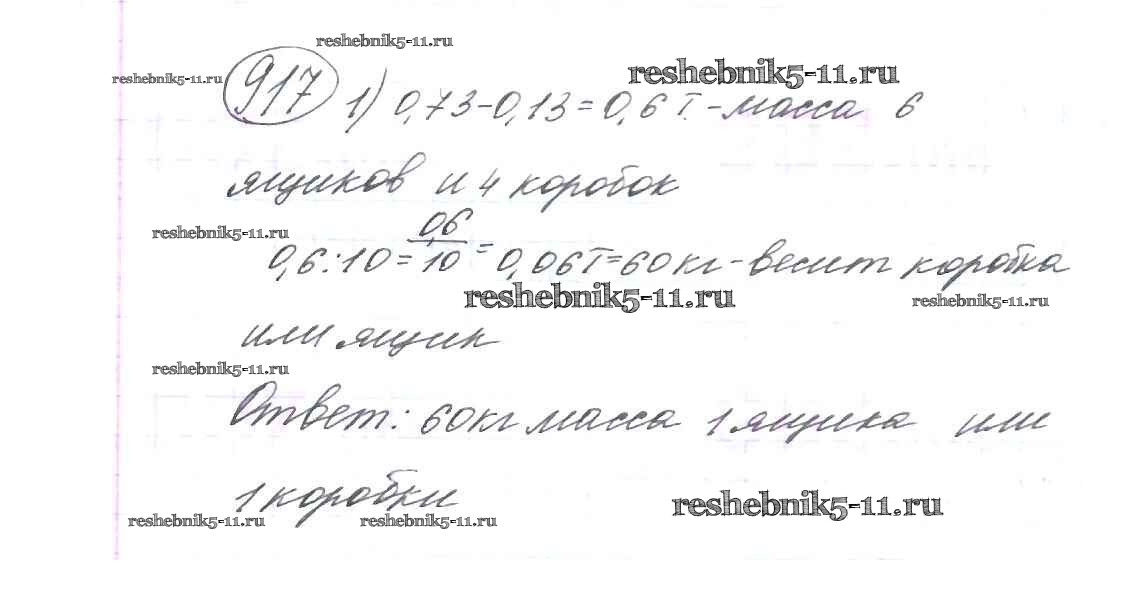 reshebnik5-11.ru
reshebnik5-11.ru
reshebnik5-11.ru
917 1) 0,73-0,13=0,6 т.-масса 6
ящиков и 4 коробок
reshebnik5-11.ru
0,6:10=0,6/10=0,06т=60кг-весит коробка
reshebnik5-11.ru
reshebnik5-11.ru
или ящик
reshebnik5-11.ru
Ответ: 60кг масса 1 ящика или
1 коробки
reshebnik5-11.ru
reshebnik5-11.ru
reshebnik5-11.ru